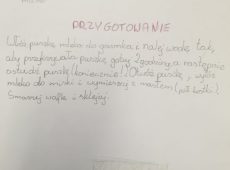 PRZYGOTOWANIE
Włóż puszkę mleka do garnka i nalej wodę tak,
aby przykrywała puszkę gotuj 2 godziny, a następnie
ostudź puszkę (koniecznie!). Otwórz puszkę, wyłóż
mleko do miski i wymieszaj z masłem (pół kostki).
Smaruj wafle i sklejaj.